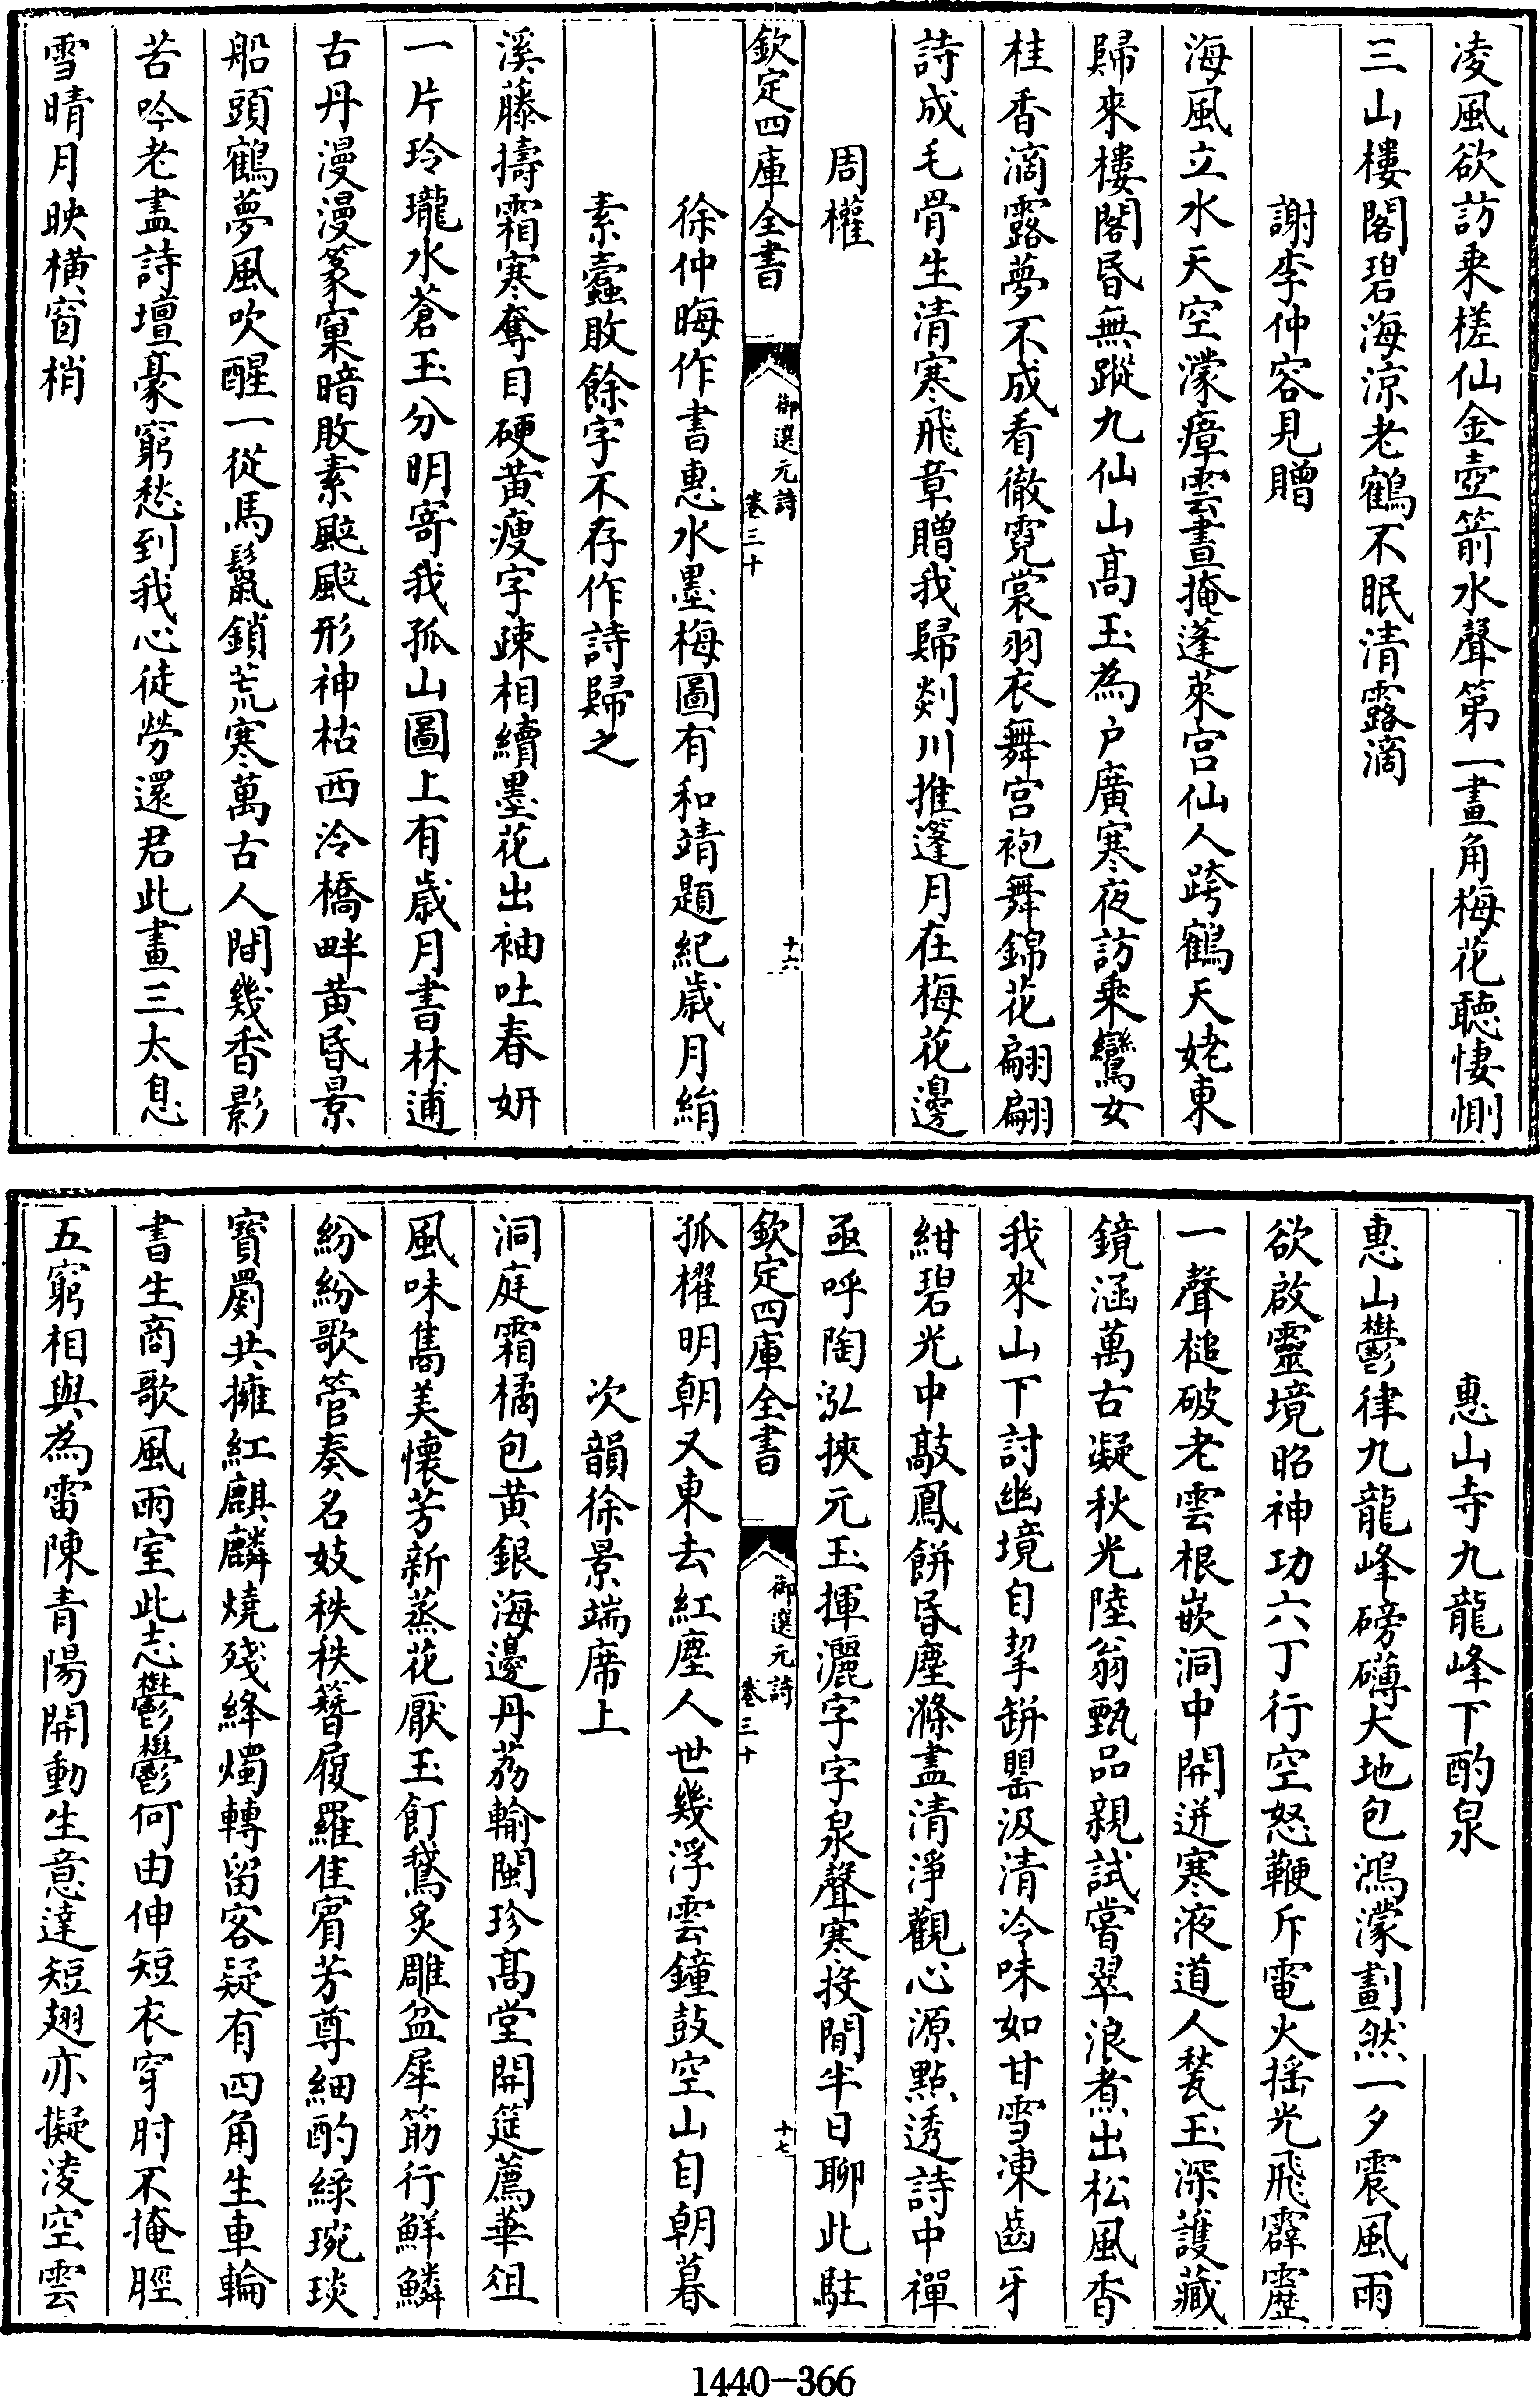 凌風欲訪乘槎仙金壺箭水聲第一畫角梅花聽悽惻
三山樓閣碧海涼老鶴不眠清露滴
謝李仲容見贈
海風立水天空濛瘴雲晝掩蓬萊宫仙人跨鶴天姥東
歸來樓閣昏無蹤九仙山高玉為户廣寒夜訪乘鸞女
桂香滴露夢不成看徹霓裳羽衣舞宫袍舞錦花翩翩
詩成毛骨生清寒飛章贈我歸剡川推篷月在梅花邊
周權
欽定四庫全書
御選元詩
卷三十
十六
徐仲晦作書惠水墨梅圖有和靖題紀歲月絹
素蠹敗餘字不存作詩歸之
溪藤擣霜寒奪目硬黄瘦字疎相續墨花出袖吐春妍
一片玲瓏水蒼玉分明寄我孤山圖上有歲月書林逋
古丹漫漫篆窠暗敗素颭颭形神枯西泠橋畔黄昏景
船頭鶴夢風吹醒一從馬鬛鎖荒寒萬古人間幾香影
苦吟老盡詩壇豪窮愁到我心徒勞還君此畫三太息
雪晴月映横窗梢
惠山寺九龍峰下酌泉
惠山鬱律九龍峰磅礴大地包鴻濛劃然一夕震風雨
欲啟靈境昭神功六丁行空怒鞭斥電火摇光飛霹靂
一聲槌破老雲根嵌洞中開迸寒液道人甃玉深護藏
鏡涵萬古凝秋光陸翁甄品親試嘗翠浪煮出松風香
我來山下討幽境自挈缾罌汲清冷味如甘雪凍齒牙
紺碧光中敲鳳餅昏塵滌盡清淨觀心源點透詩中禪
亟呼陶泓挾元玉揮灑字字泉聲寒投閒半日聊此駐
欽定四庫全書
御選元詩
卷三十
十七
孤櫂明朝又東去紅塵人世幾浮雲鐘鼓空山自朝暮
次韻徐景端席上
洞庭霜橘包黄銀海邊丹荔輸閩珍高堂開筵薦華俎
風味雋美懷芳新蒸花厭玉飣鵞炙雕盆犀筯行鮮鱗
紛紛歌管奏名妓秩秩簪履羅佳賔芳尊細酌緑琬琰
寶罽共擁紅麒麟燒殘絳燭轉留客疑有四角生車輪
書生商歌風雨室此志鬱鬱何由伸短衣穿肘不掩脛
五窮相與為雷陳青陽開動生意達短翅亦擬凌空雲
1440-366